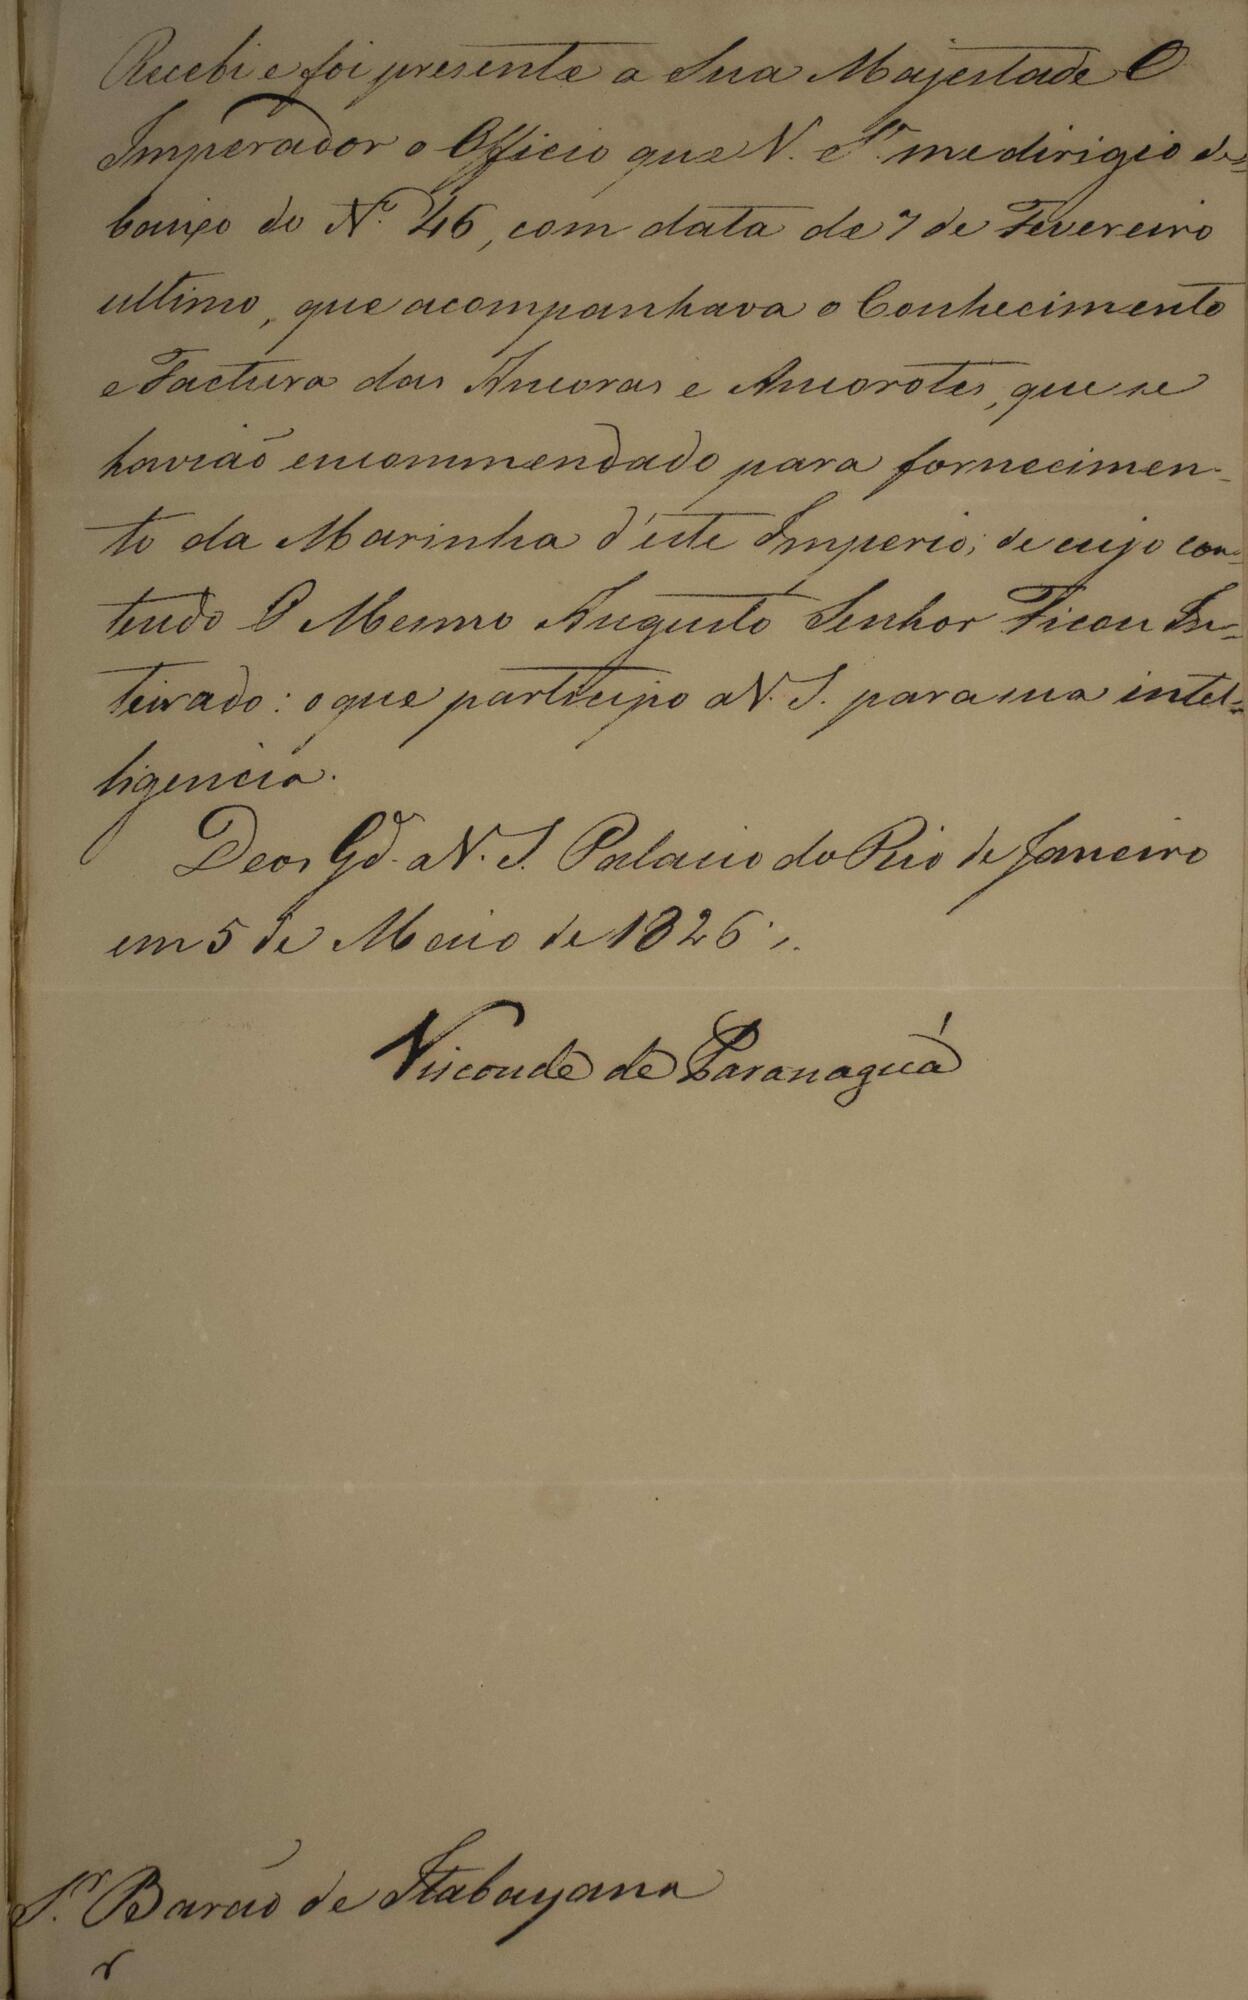 Recebi e foi presente a Sua Majestade O
Imperador o Officio que V. S.ª me dirigio de-
baixo do N.º 46, com data de 7 de Fevereiro
ultimo, que acompanhava o Conhecimento
e Factura das Ancoras e Ancorotes, que se
havião encommendado para fornecimen-
to da Marinha d'este Imperio; de cujo con-
teudo O Mesmo Augusto Senhor Ficou In-
teirado: o que participo a V. S. para sua intel-
ligencia.
Deos Gd.e a V. S. Palacio do Rio de Janeiro
em 5 de Maio de 1826.
Visconde de Paranaguá
S.r Barão de Itabayana